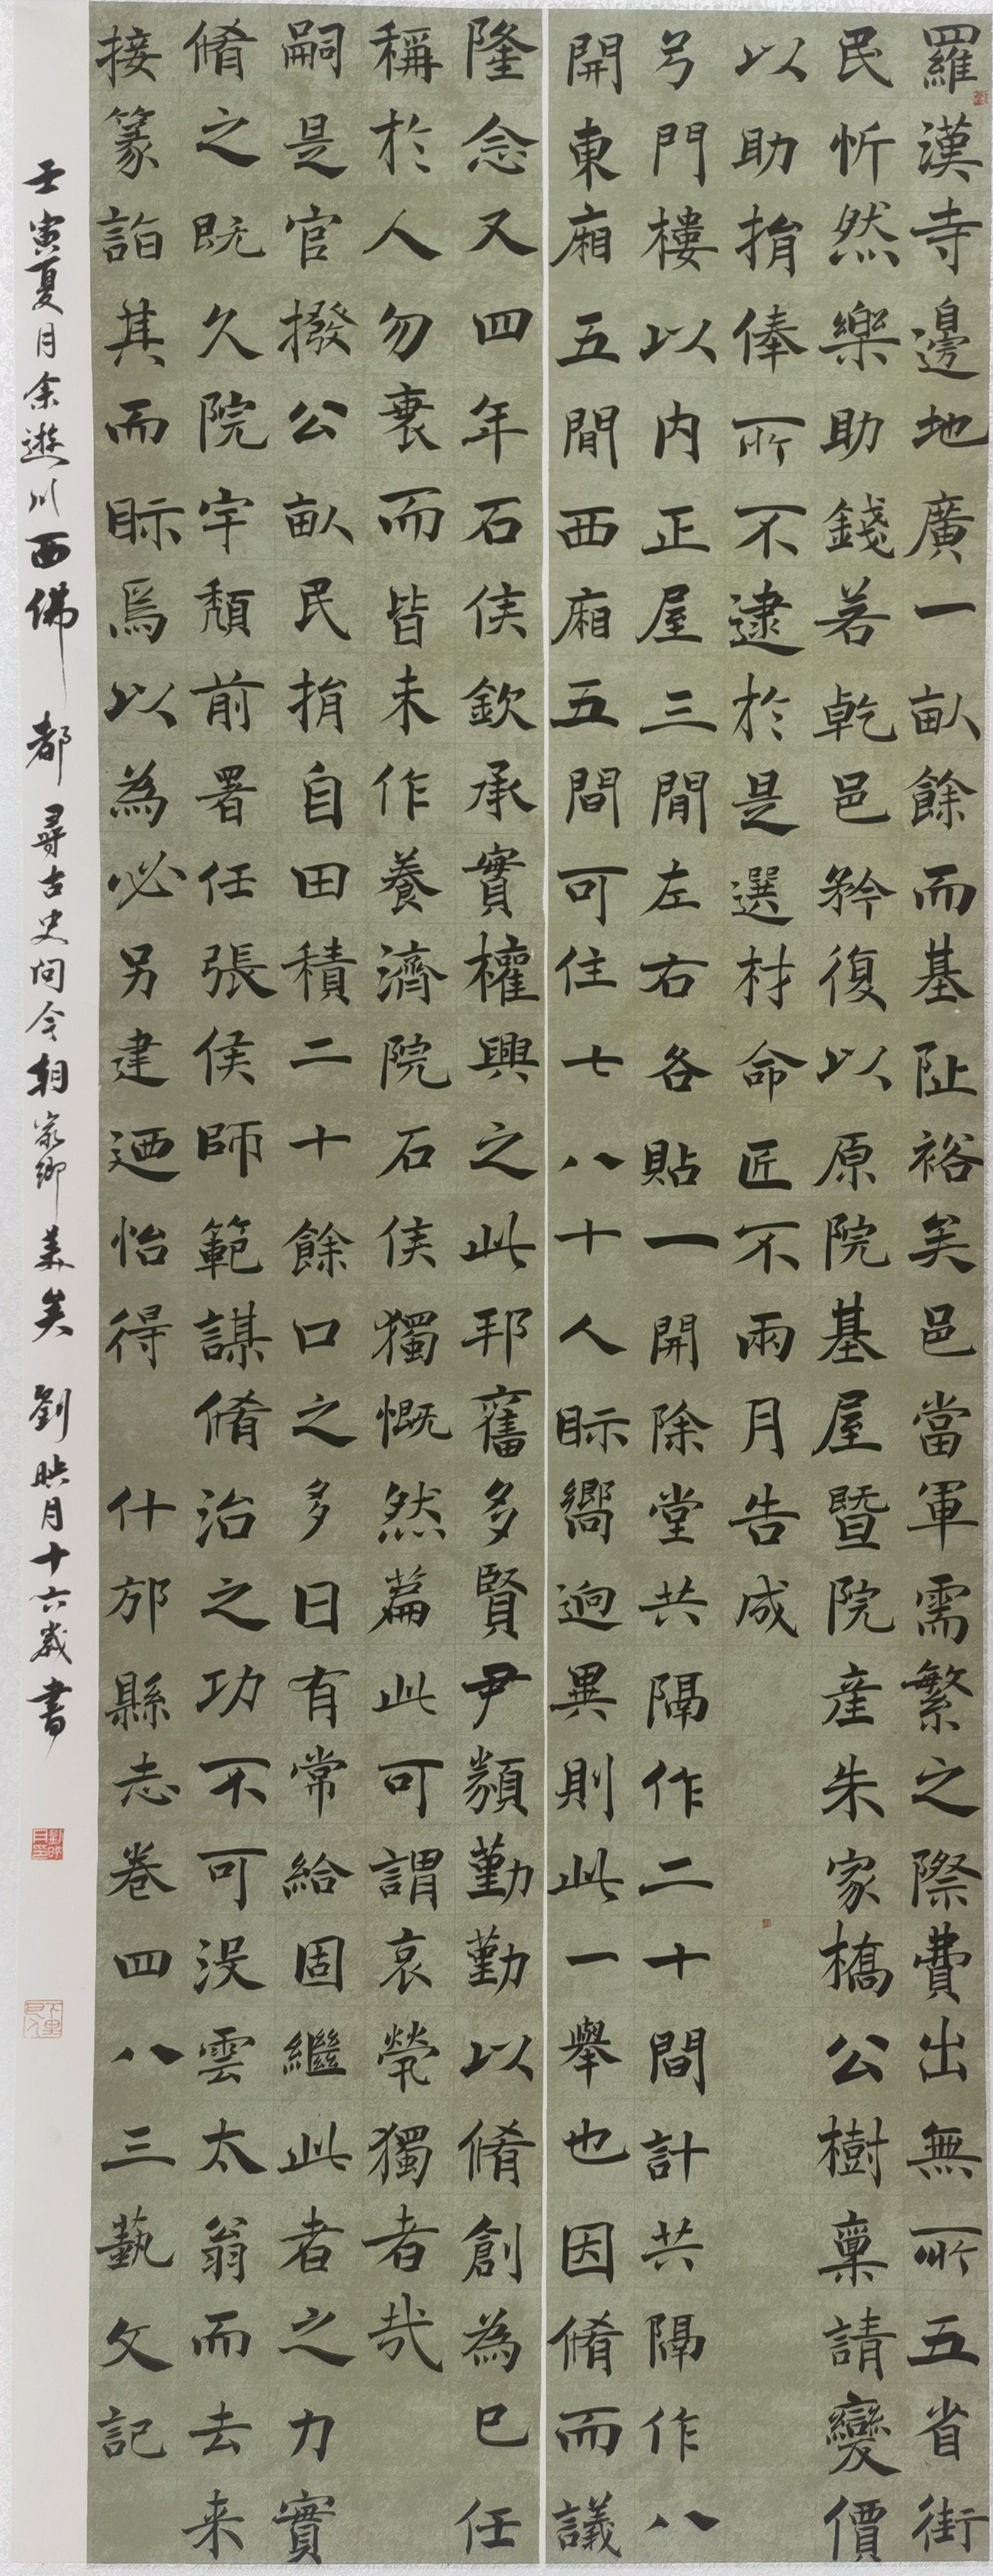 羅漢寺邊地廣一畝餘而基阯裕矣邑當軍需繁之際費出無所五省街
民忻然樂助錢若乾邑矜復以原院基屋暨院産朱家橋公樹稟請變價
以助捐俸所不逮於是選材命匠不兩月告成
弓門樓以内正屋三間左右各貼一開除堂共隔作二十間計共隔作八
開東廂五間西廂五間可住七八十人眎嚮迥異則此一舉也因脩而議
隆念又四年石侯欽承實權興之此邗舊多賢尹類勤勤以脩創為已任
稱於人勿衰而皆未作養濟院石侯獨慨然篇此可謂哀煢獨者哉
嗣是官撥公畝民捐自田積二十餘口之多日有常給固繼此者之力實
脩之既久院宇頹前署任張侯師範謀脩治之功不可没雲太翁而去来
接篆詣其而眎焉以為必另建迺怡得 什邡縣志卷四八三藝文記
壬寅夏月余遊川西佛都尋古史问今朝家鄉美矣 劉映月十六歲書